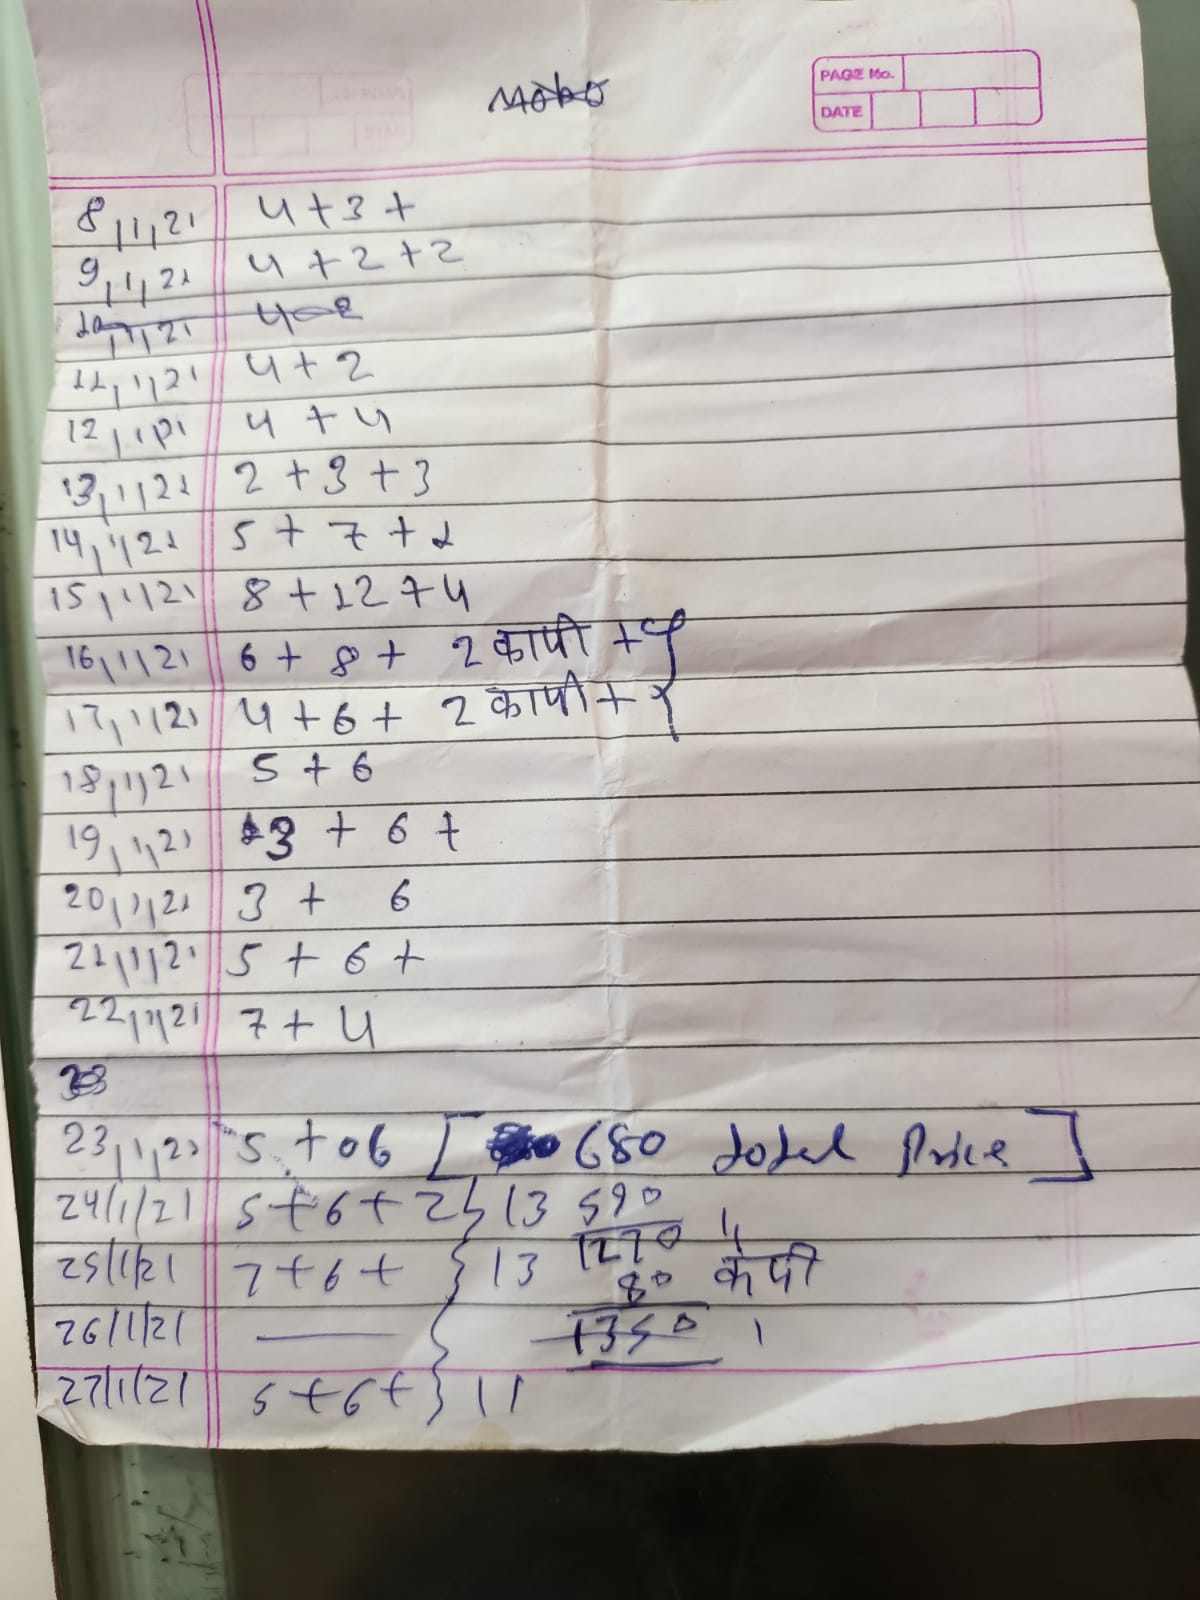 PAGE No.
DATE
8,1,21 4+3+
9,1,21 4+2+2
11,1,21 4+2
12,1,21 4+4
13,1,21 2+3+3
14,1,21 5+7+1
15,1,21 8+12+4
16,1,21 6+8+ 2 कापी +
17,1,21 4+6+ 2 कापी +
18,1,21 5+6
19,1,21 3+6+
20,1,21 3+ 6
21,1,21 5+6+
22,1,21 7+4
23,1,21 5+06 [ 680 total Price ]
24/1/21 5+6+2} 13 590
25/1/21 7+6+ } 13 1270
80 कपी
26/1/21 — 1350
27/1/21 5+6+} 11